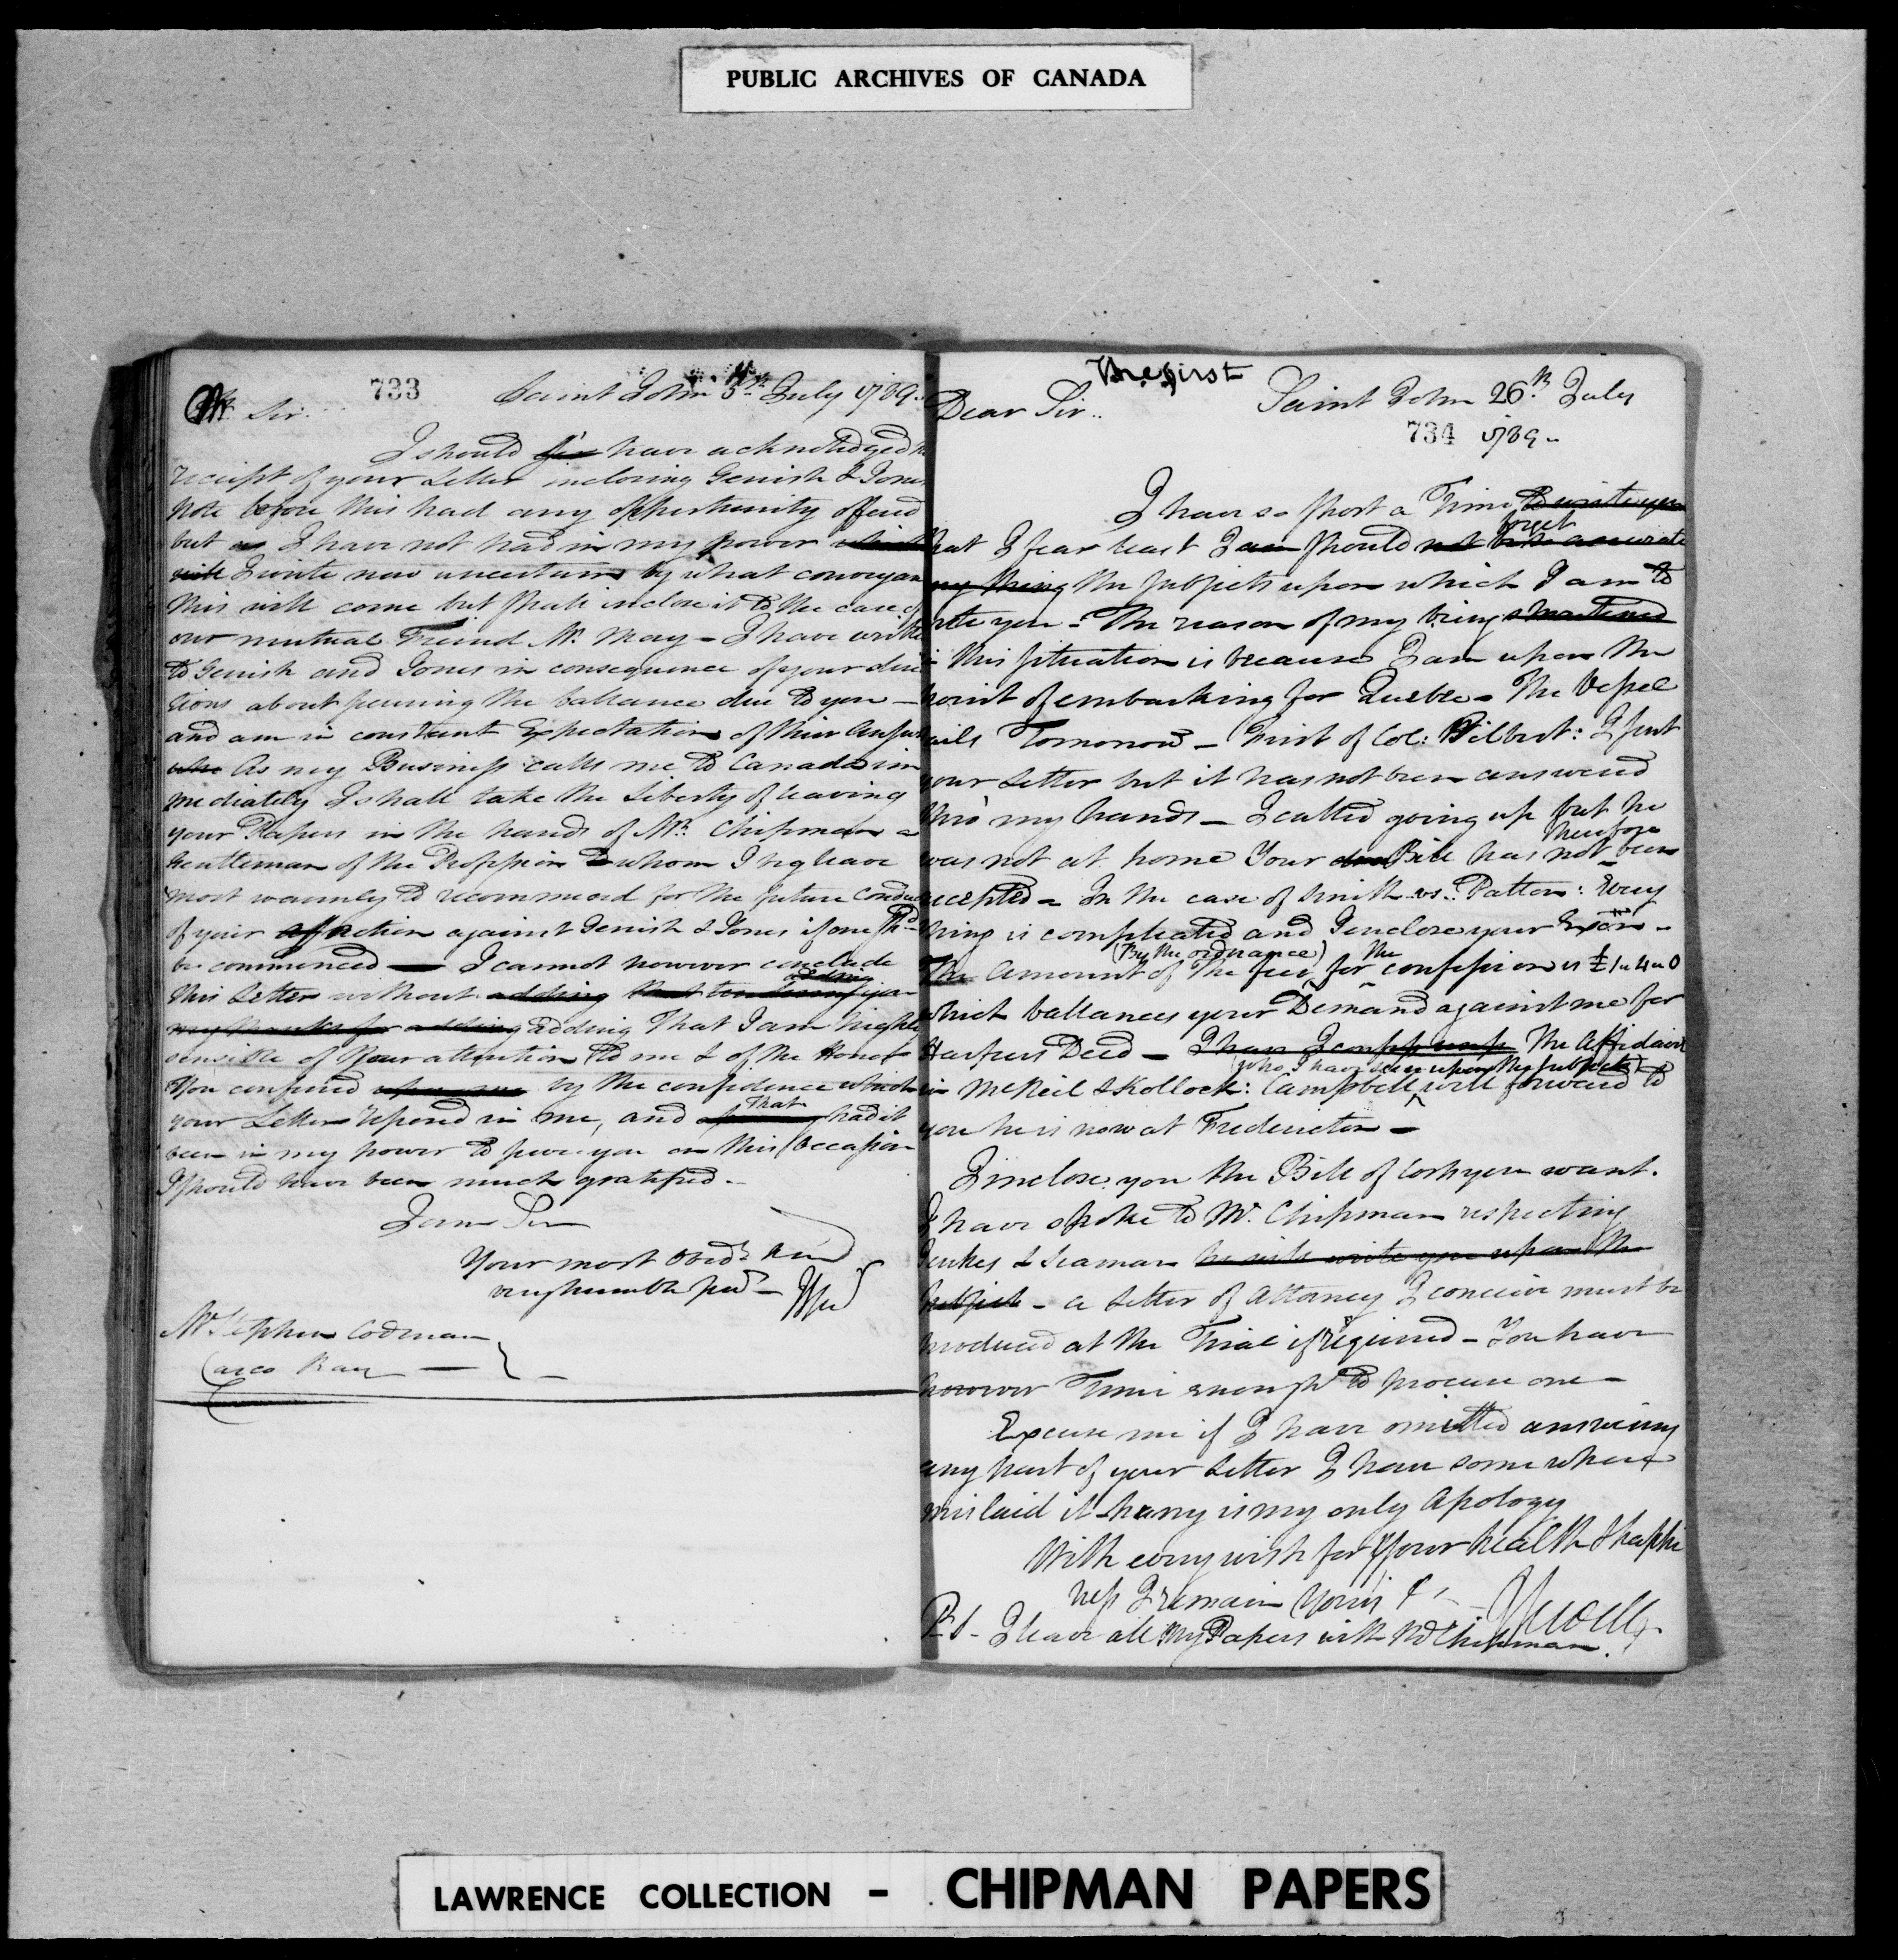 PUBLIC ARCHIVES OF CANADA
733
Saint John 5th July 1789
Sir
I should have acknowledged
receipt of your Letter inclosing Gerrish & Jones
Note before this had any opportunity offered
but as I have not had in my power
I write now uncertain by what conveyan
this will come but shall inclose it to the care of
our mutual Friend Mr. May - I have
to Gerrish and Jones in consequence of your direc
tions about securing the ballance due to you -
and am in constant Expectation of their
As my Business calls me to Canada im
mediately I shall take the Liberty of leaving
your Papers in the hands of Mr. Chipman a
Gentleman of the Profession to whom I beg leave
most warmly to recommend for the future
of your action against Gerrish & Jones if one shd
be commenced — I cannot however conclude
this Letter without adding
my thanks for adding adding that I am highly
sensible of your attention to me & of the Honor
you conferred upon me by the confidence which
your Letter reposed in me, and that had it
been in my power to serve you on this occasion
I should have been much gratified -
I am Sir
Your most obedt and
very humble
Mr. Stephen Codman
Casco Bay
Saint John 26th July
Dear Sir
734 1789
I have so short a Time to write you
that I fear least I am should not be so accurate
forget
any thing the subjects upon which I am to
write you - The reason of my being
in this situation is because I am upon the
point of embarking for Quebec - The Vessel
sails Tomorrow - First of Col: : I sent
your Letter but it has not been answered
thro my hands - I called going up but he
was not at home Your Bill has not therefore been
accepted - In the case of Smith vs. Patton: Every
thing is compleated and I enclose your
The amount of the fees (By the ordinance) for the confession is £1 4 0
which ballances your Demand against me for
Deed - The Affidavit
in McNeil & Kollock: Campbell (who I have seen upon the subject) will forward to
you he is now at Fredericton -
I inclose you the Bill of Costs you want.
I have spoke to Mr. Chipman respecting
& Seaman he will write you upon the
subject - a Letter of Attorney I conceive must be
produced at the Trial if required - You have
however Time enough to procure one -
Excuse me if I have omitted answering
any part of your Letter I have some where
mislaid it hurry is my only Apology
With every wish for your health & happi
ness I remain Yours &c
P.S - I leave all my Papers with Mr Chipman.
LAWRENCE COLLECTION - CHIPMAN PAPERS